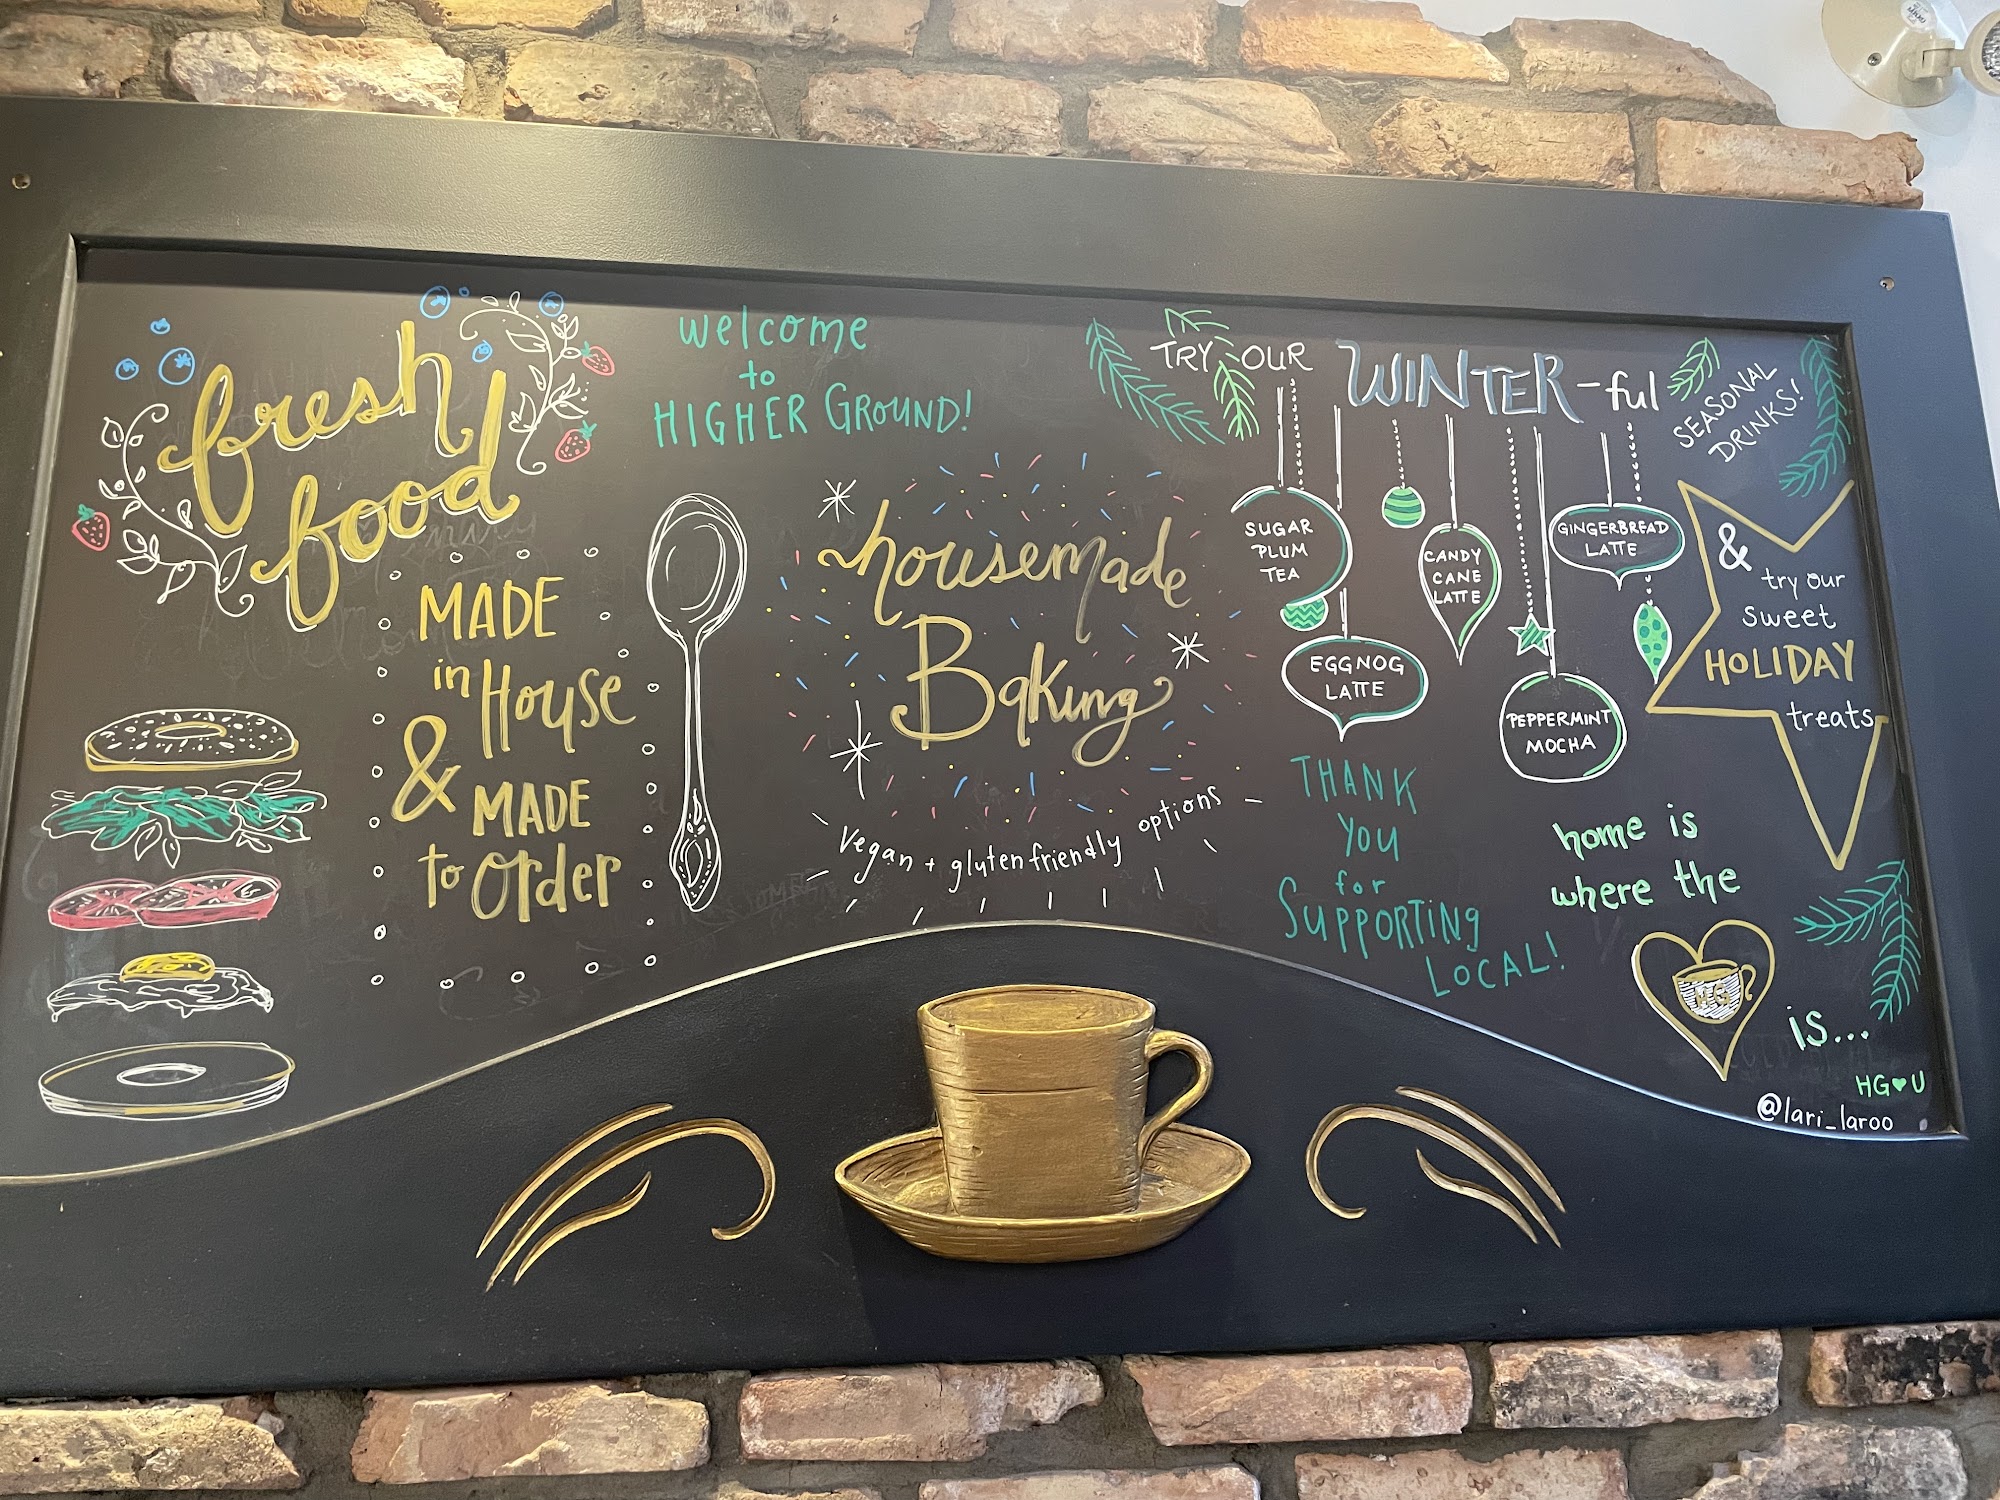 fresh
food
MADE
in House
&
MADE
to order
welcome
to
HIGHER GROUND!
housemade
Baking
vegan + gluten friendly options
TRY OUR WINTER-ful
SEASONAL
DRINKS!
SUGAR
PLUM
TEA
EGGNOG
LATTE
CANDY
CANE
LATTE
PEPPERMINT
MOCHA
GINGERBREAD
LATTE
&
try our
sweet
HOLIDAY
treats
THANK
YOU
for
SUPPORTING
LOCAL!
home is
where the
HG
is...
HG♥U
@lari_laroo